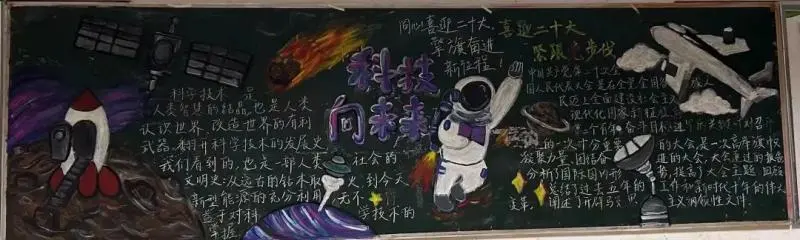 同心喜迎二十大
擎旗奋进
新征程!
喜迎二十大
紧跟党步伐
科技
向未来
科学技术 是
人类智慧的结晶,也是人类
认识世界、改造世界的有利
武器,翻开科学技术的发展史
我们看到的,也是一部人类 社会的
文明史:从远古的钻木取 火,到今天
新型能源的充分利用 无不
基于对科 学技术的
掌握
中国共产党第二十次全
国人民代表大会是在全党全国
迈上全面建设社会主
现代化国家新征程
第二个百年奋斗目标进
的一次十分重要 的大会,是一次高举旗帜
凝聚力量 团结奋 进的大会,大会通过的报告
分析了国际国内形 势,提高了大会主题 回顾
总结了过去五年的 工作和新时代十年的伟大
变革, 阐述了开辟马 主义